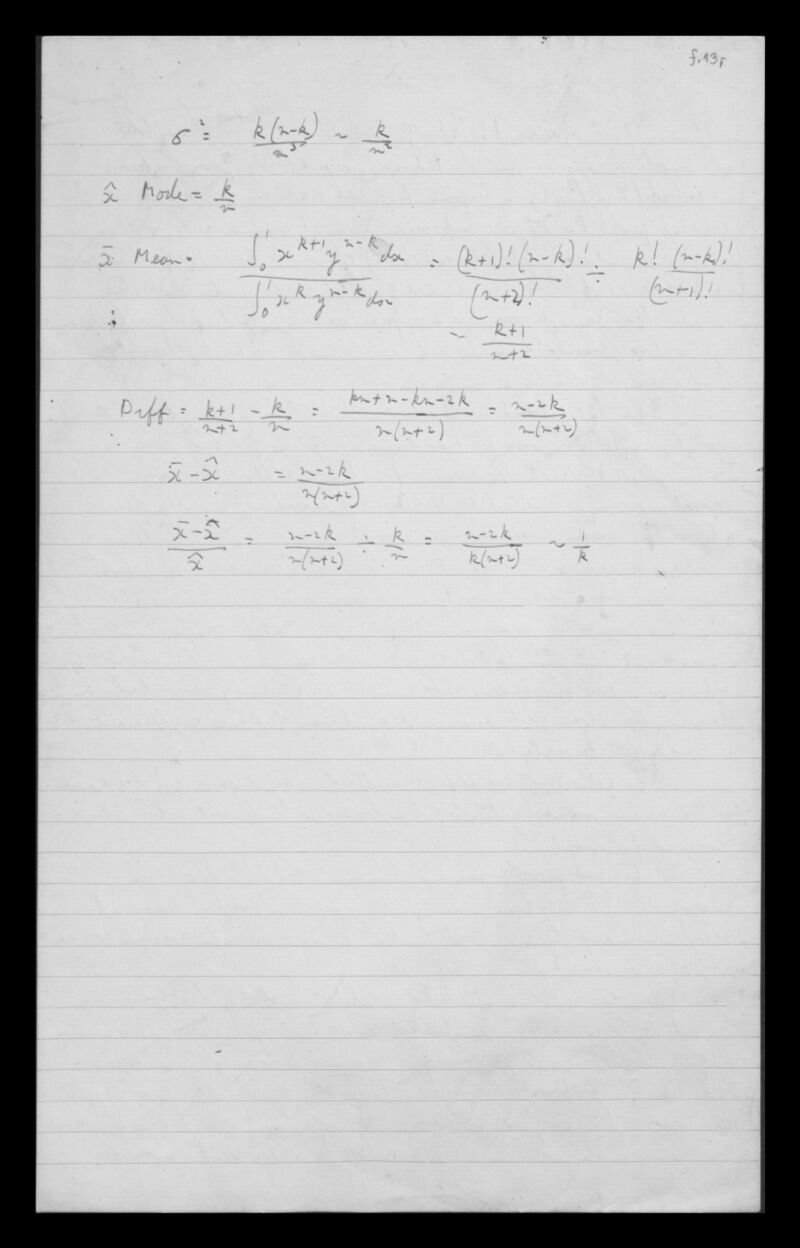 f.13r
σ² = k(n-k)/n³ ~ k/n²
x̂ Mode = k/n
x̄ Mean = ∫₀¹ x^{k+1} y^{n-k} dx / ∫₀¹ x^k y^{n-k} dx = (k+1)! (n-k)! / (n+2)! ÷ k! (n-k)! / (n+1)!
~ (k+1)/(n+2)
Diff = (k+1)/(n+2) - k/n = (kn+n-kn-2k)/n(n+2) = (n-2k)/n(n+2)
x̄ - x̂ = (n-2k)/n(n+2)
(x̄ - x̂)/x̂ = (n-2k)/n(n+2) ÷ k/n = (n-2k)/k(n+2) ~ 1/k